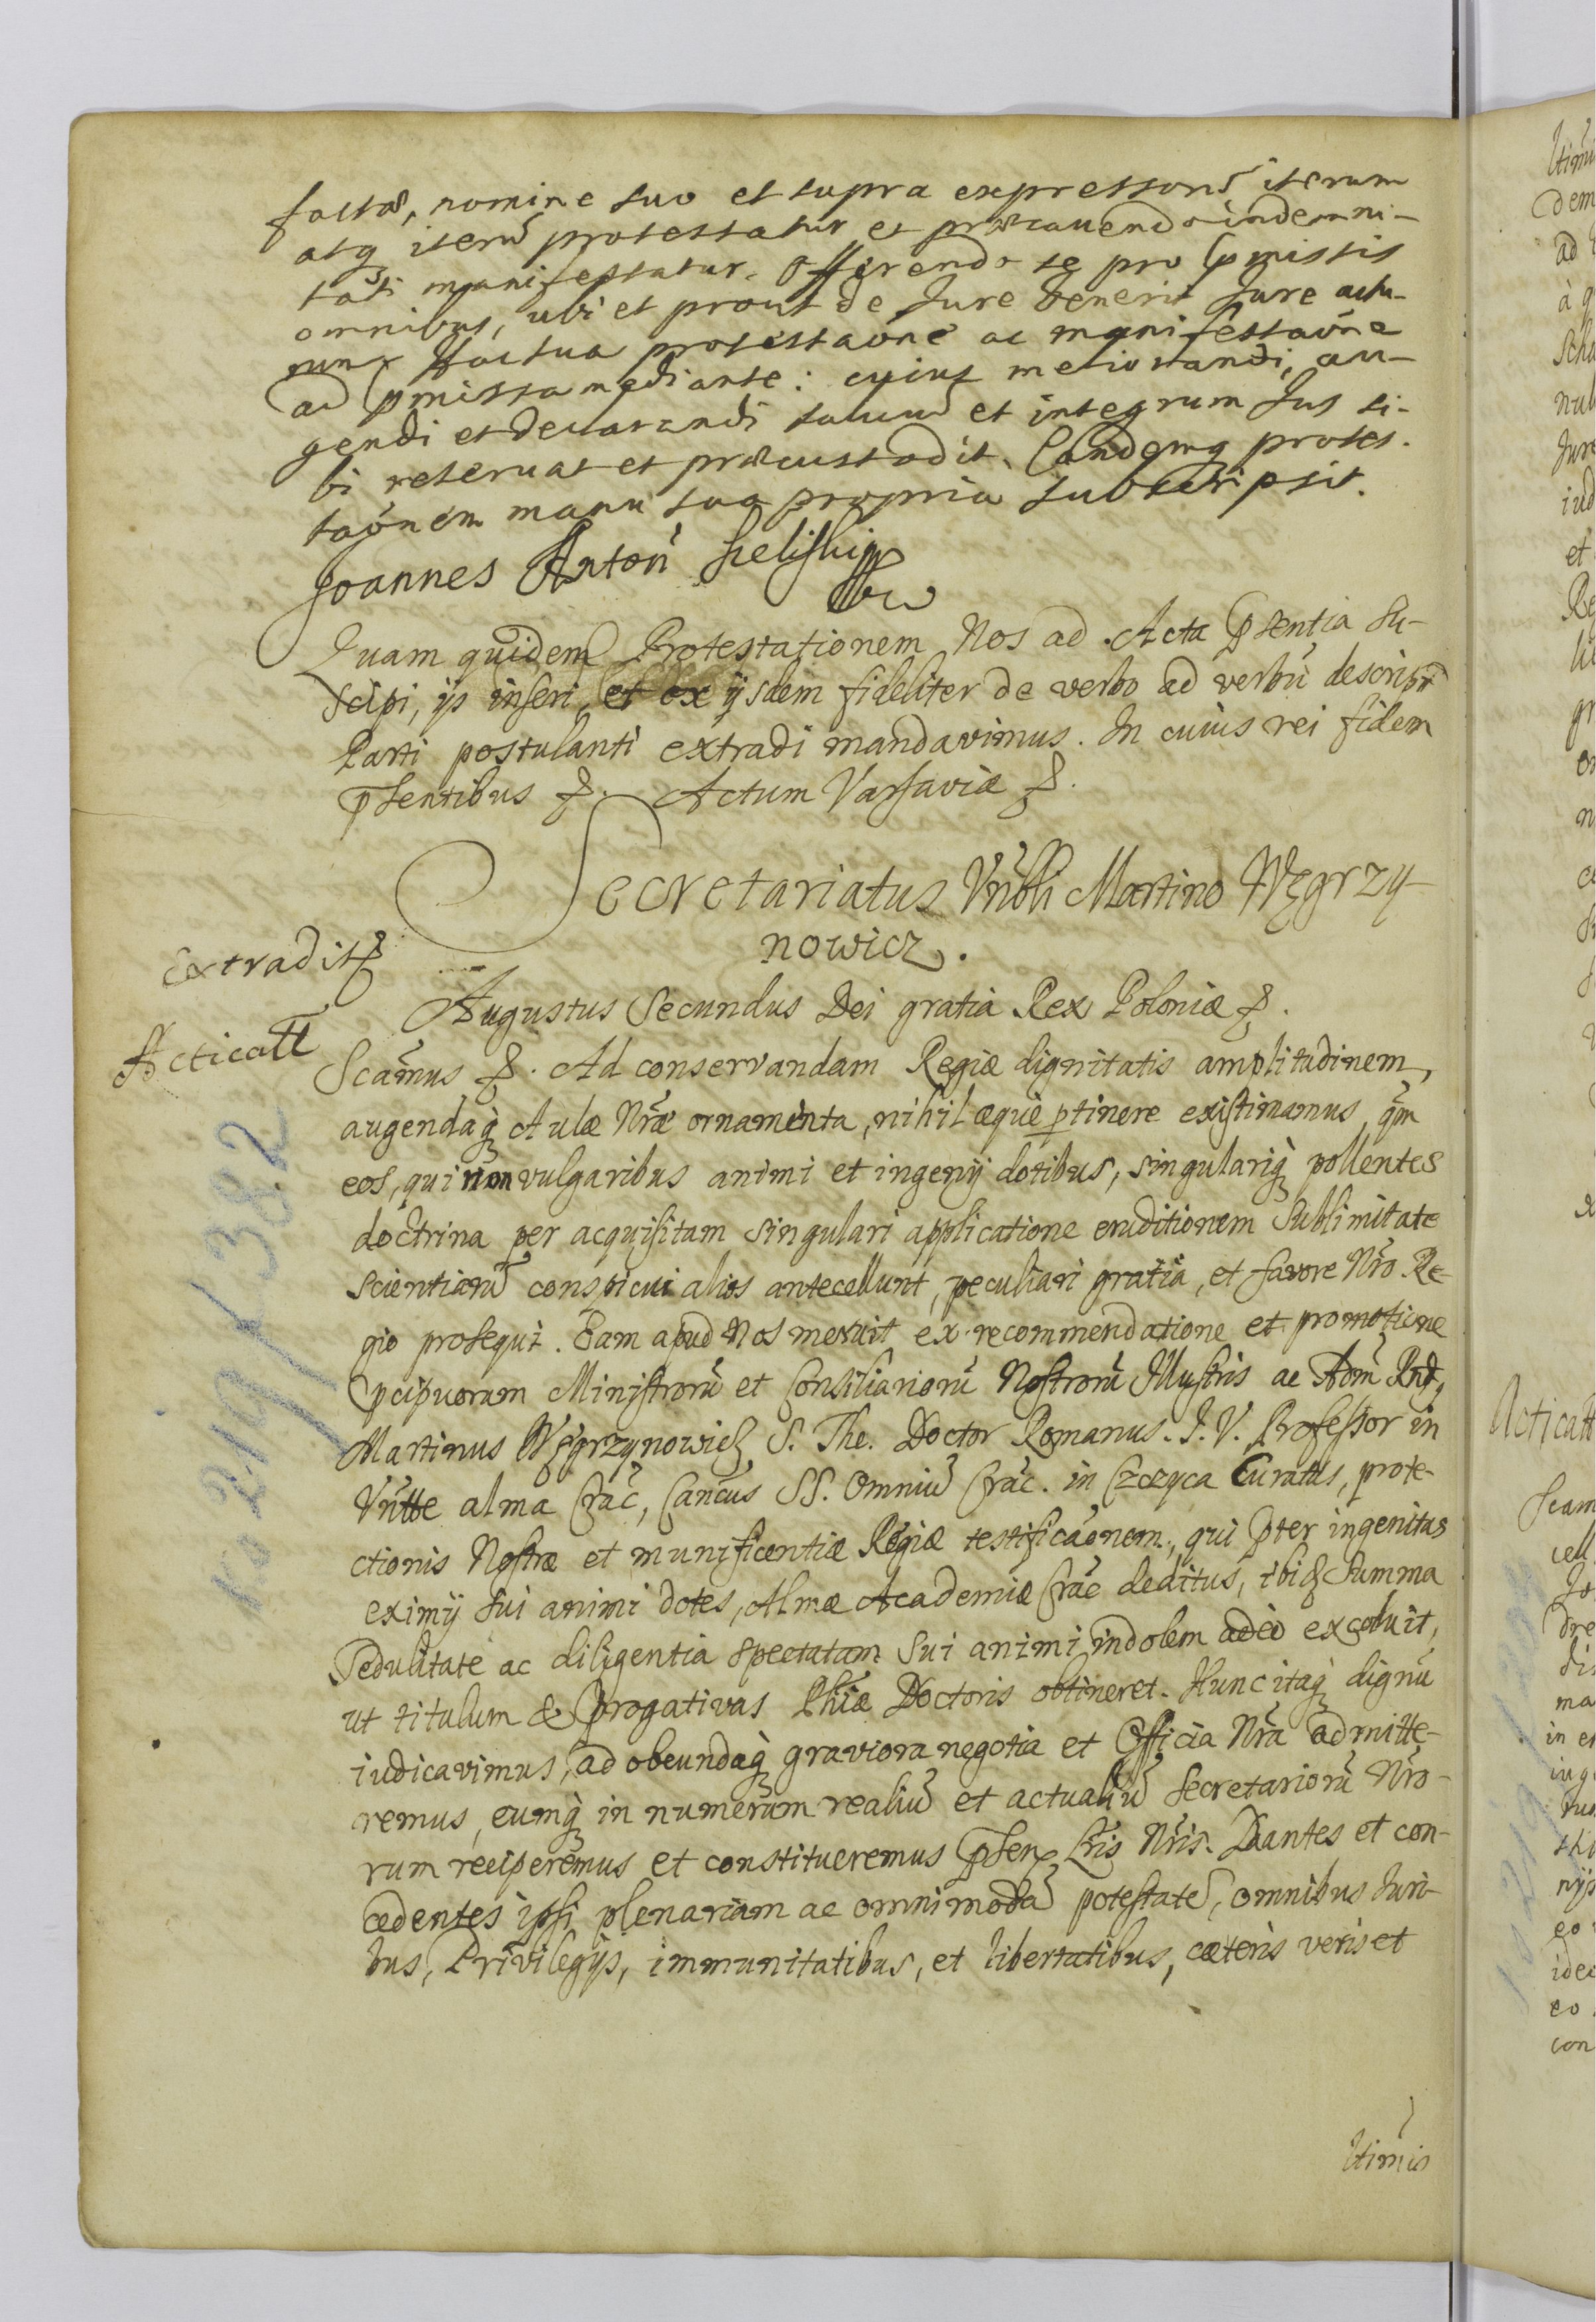 factas, nomine suo et supra expressorũ iterum
atq iterũ protestatur et præcauendo indemni-
tati manifestatur. Offerendo se pro pmissis
omnibus, ubi et prout de Jure venerit Jure actu-
rum
ad pmissa mediante: cuius meliorandi, au-
gendi et declarandi saluum et integrum Jus si-
bi reseruat et præcustodit. Eandemq protes-
taõnem manu sua propria subscripsit.
Joannes Anton
Quam quidem Protestationem Nos ad Acta pñsentia su-
scipi, ijs inseri, et ex ijsdem fideliter de verbo ad verbũ describi
Parti postulanti extradi mandavimus. In cuius rei fidem
pñsentibus &. Actum Varsaviæ &.
Secretariatus Vñbli Martino Węgrzy-
nowicz.
Extradit
Augustus Secundus Dei gratia Rex Poloniæ &.
Acticatt
Scamus &. Ad conservandam Regiæ dignitatis amplitudinem,
augendaq Aulæ Nræ ornamenta, nihil æquè ptinere existimamus qm
eos, qui non vulgaribus animi et ingenij dotibus, singulariq pollentes
doctrina per acquisitam singulari applicatione eruditionem sublimitate
scientiarũ conspicui alios antecellunt, peculiari gratiâ, et favore Nro Re-
gio prosequi. Eam apud Nos meruit ex recommendatione et promotione
pcipuorum Ministrorũ et Consiliariorũ Nostrorũ Illustris ac Adm Rnd,
Martinus Węgrzynowicz S. The. Doctor Romanus. J. V. Professor in
Vñtte alma Crac, Cancus SS. Omniũ Crac. in Czczyca Curatus, prote-
ctionis Nostræ et munificentiæ Regiæ testificaõnem, qui pter ingenitas
eximij sui animi dotes, Almæ Academiæ Crac deditus, ibiq summa
sedulitate ac diligentia spectatam sui animi indolem adeò excoluit,
ut titulum & progativas Phiæ Doctoris obtineret. Hunc itaq dignũ
iudicavimus, ad obeundaq graviora negotia et Officia Nra admitte-
remus, eumq in numerum realiũ et actualiũ Secretariorũ Nro-
rum reciperemus et constitueremus pñsen Lris Nris. Dantes et con-
cedentes ipsi plenariam ac omnimodã potestatẽ, omnibus Juri-
bus, Privilegijs, immunitatibus, et libertatibus, cæteris veris et
ltimis